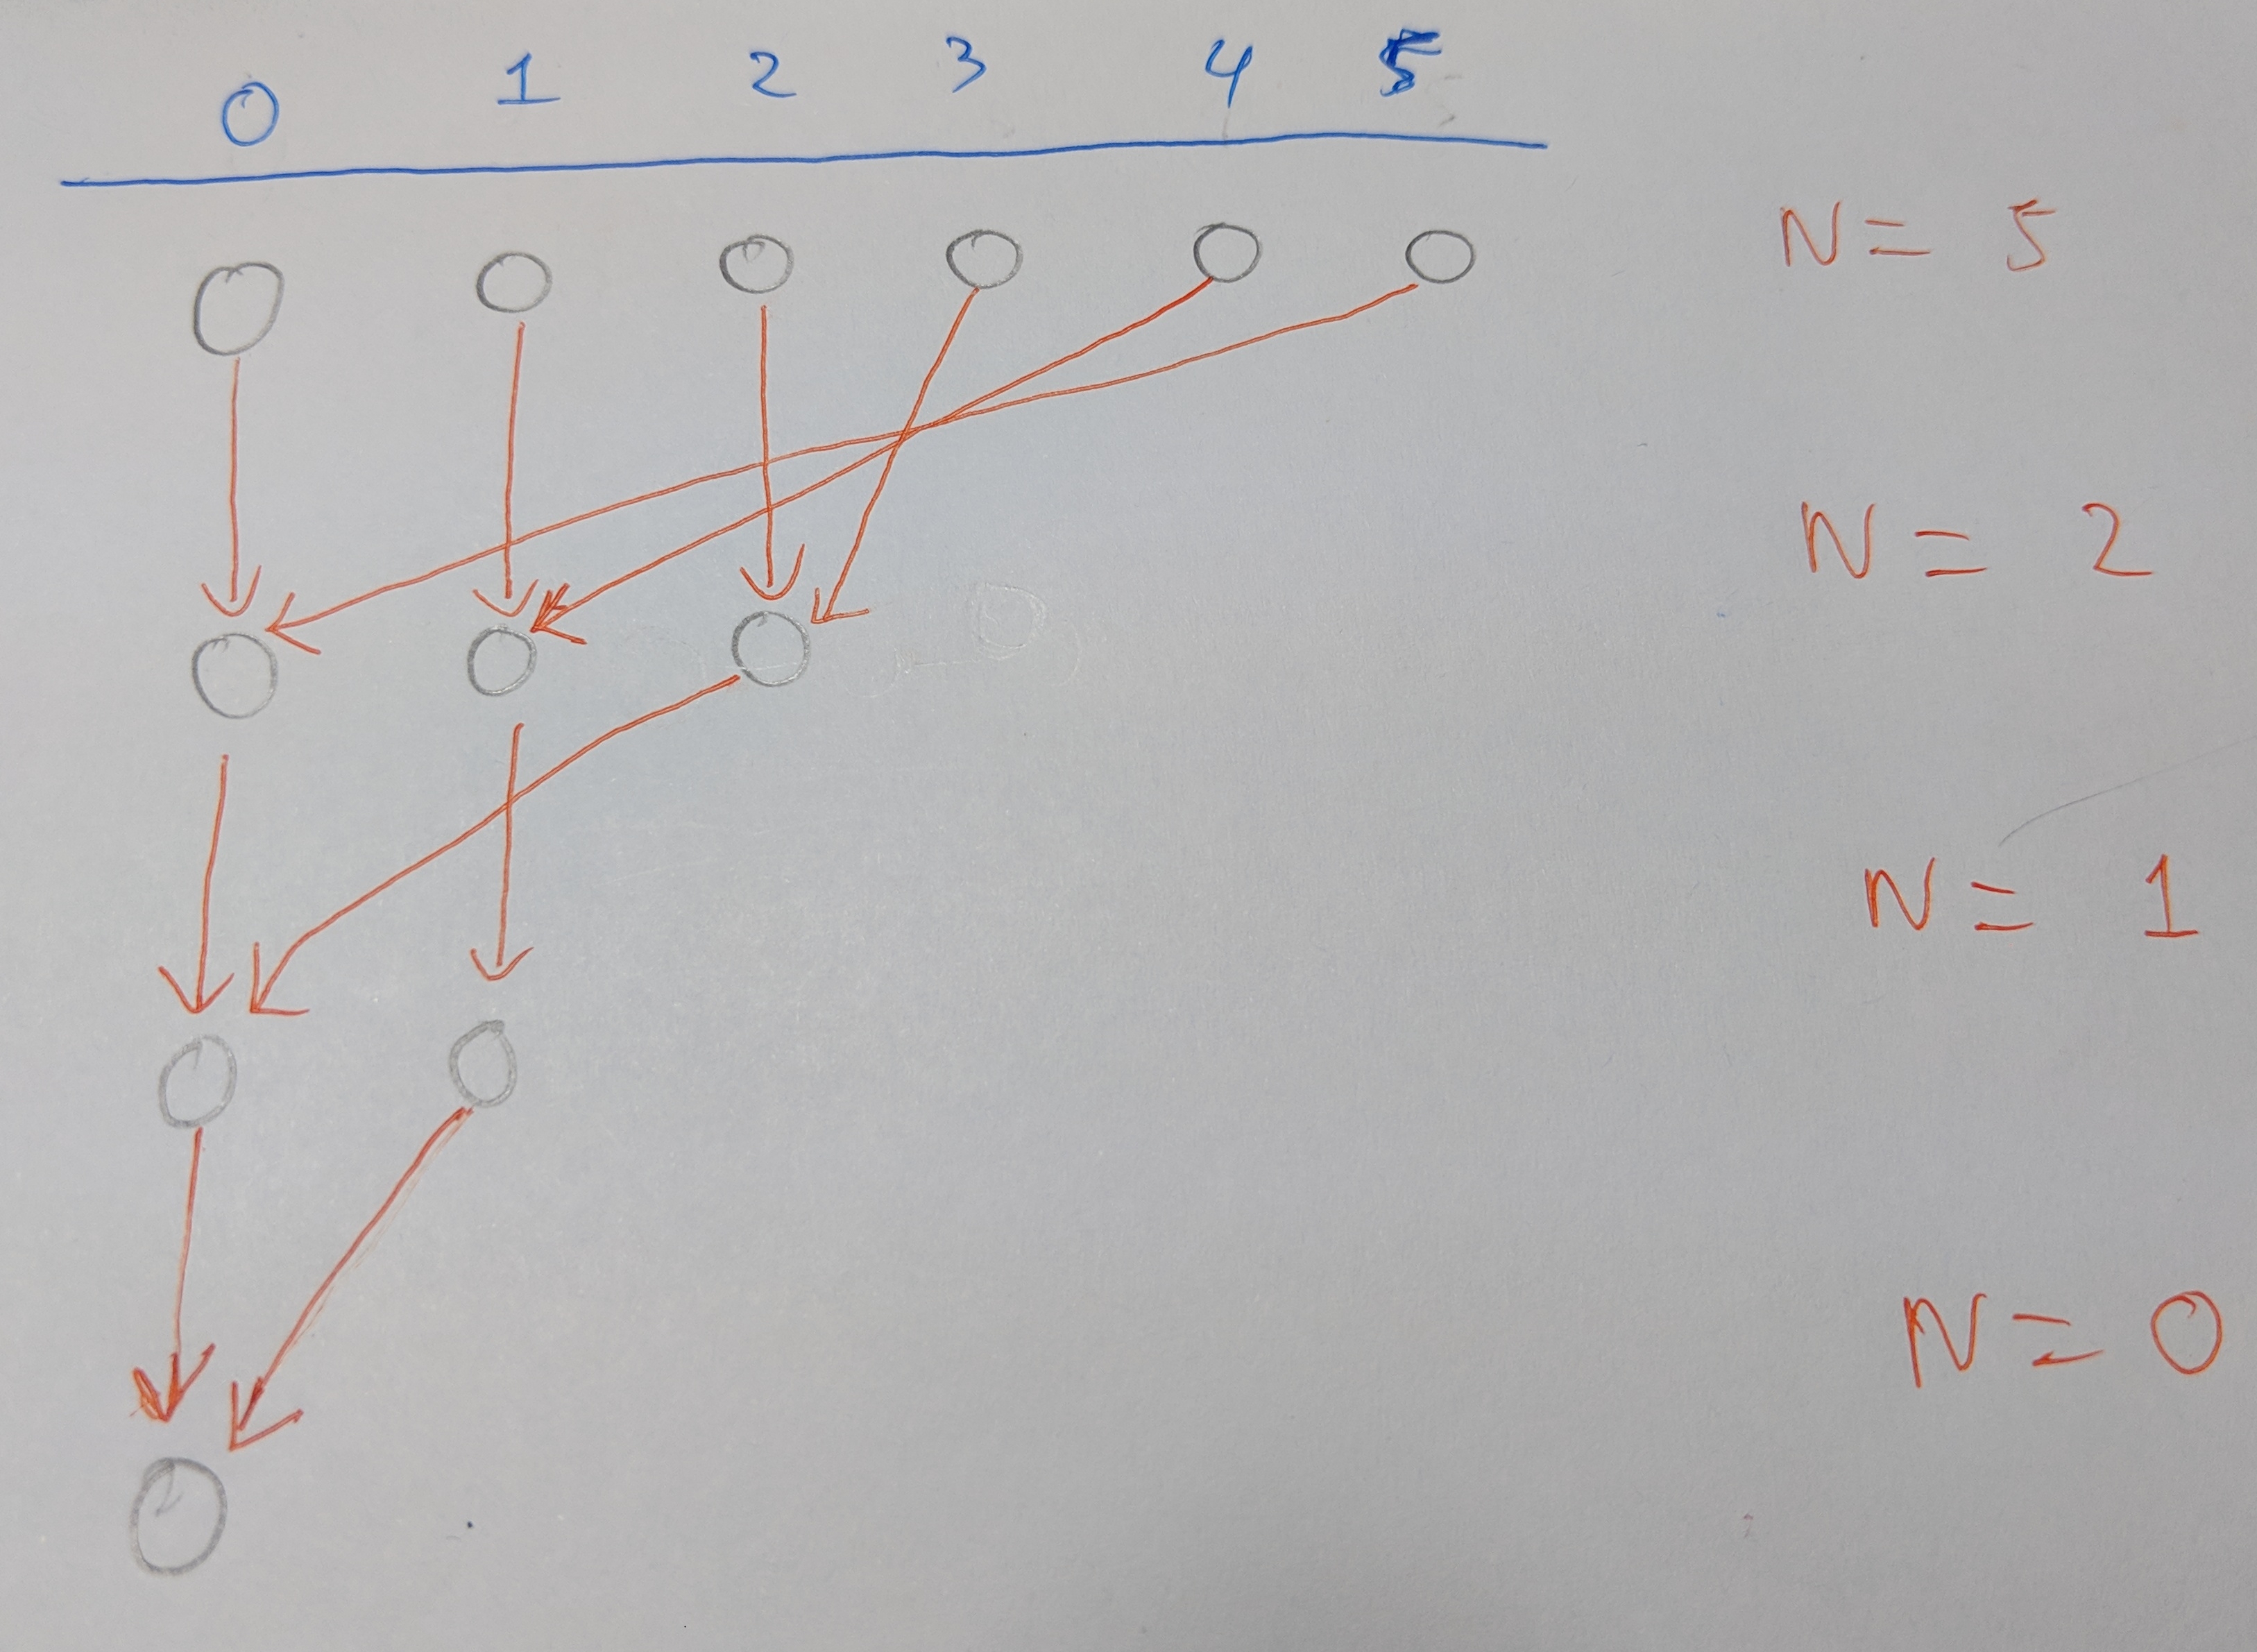 0 1 2 3 4 5
N = 5
N = 2
N = 1
N = 0